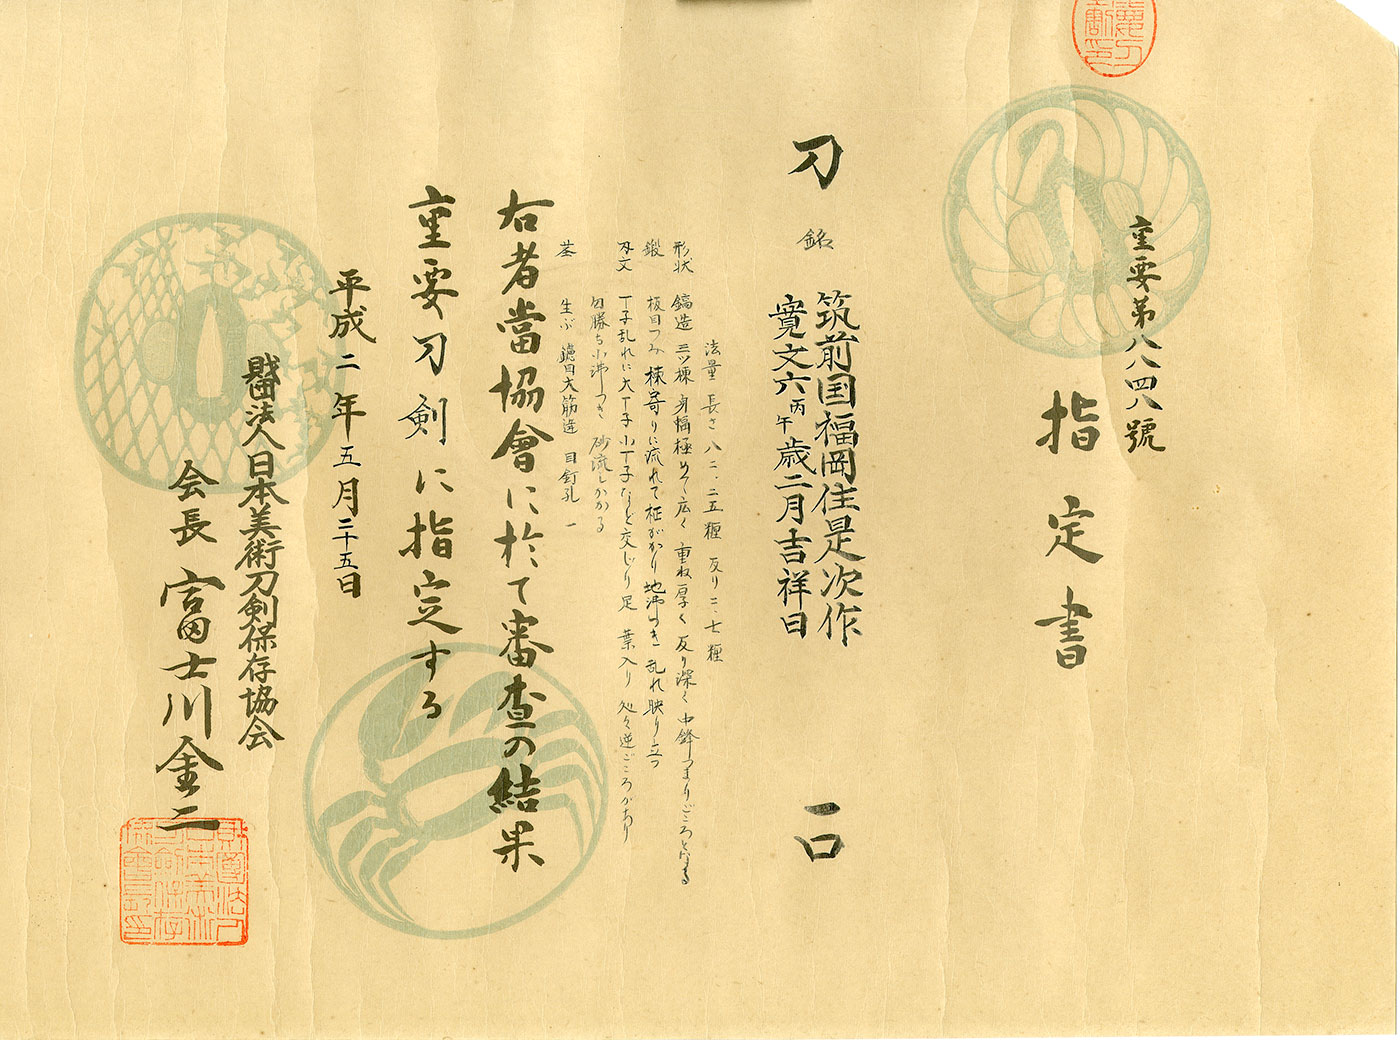 重要第八八四八號
指定書
刀 銘 筑前国福岡住是次作
寛文六丙午歳二月吉祥日
一口
法量 長さ八二.二五糎 反り二.七糎
形状 鎬造 三ツ棟 身幅極めて広く 重ね厚く 反り深く 中鋒つまりごころとなる
鍛 板目つみ 棟寄りに流れて柾がかり 地沸つき 乱れ映り立つ
刃文 丁子乱れに大丁子 小丁子など交じり 足 葉入り 処々逆ごころがあり
匂勝ち小沸つき 砂流しかかる
茎 生ぶ 鑢目大筋違 目釘孔一
右者當協會に於て審査の結果
重要刀剣に指定する
平成二年五月二十五日
財団法人日本美術刀剣保存協会
会長 富士川金二